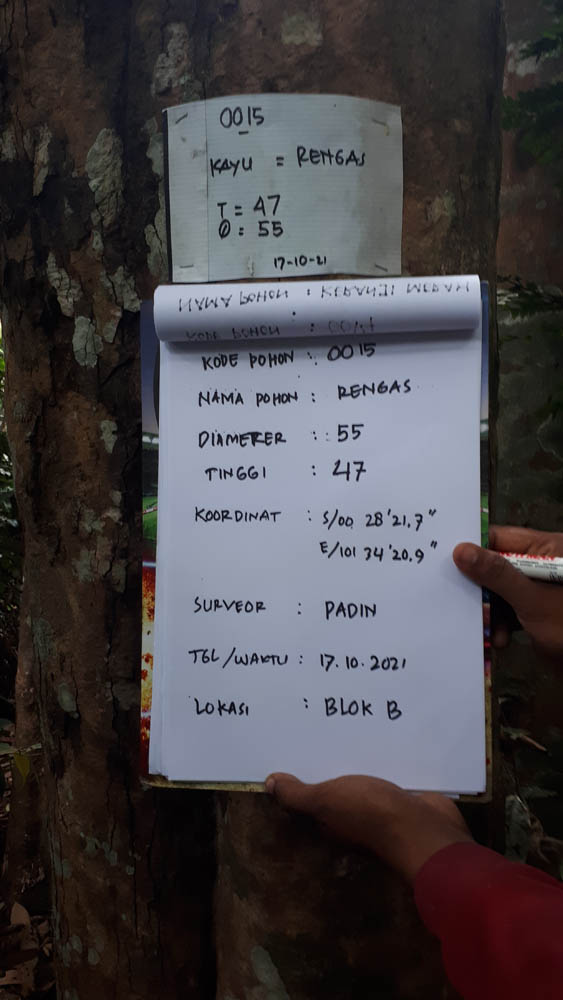 0015
KAYU = RENGAS
T = 47
Ø : 55
17-10-21
NAMA POHON :
KODE POHON :
KODE POHON : 0015
NAMA POHON : RENGAS
DIAMERER : : 55
TINGGI : 47
KOORDINAT : S/00 28'21,7"
E/101 34'20.9"
SURVEOR : PADIN
TGL/WAKTU : 17.10.2021
LOKASI : BLOK B